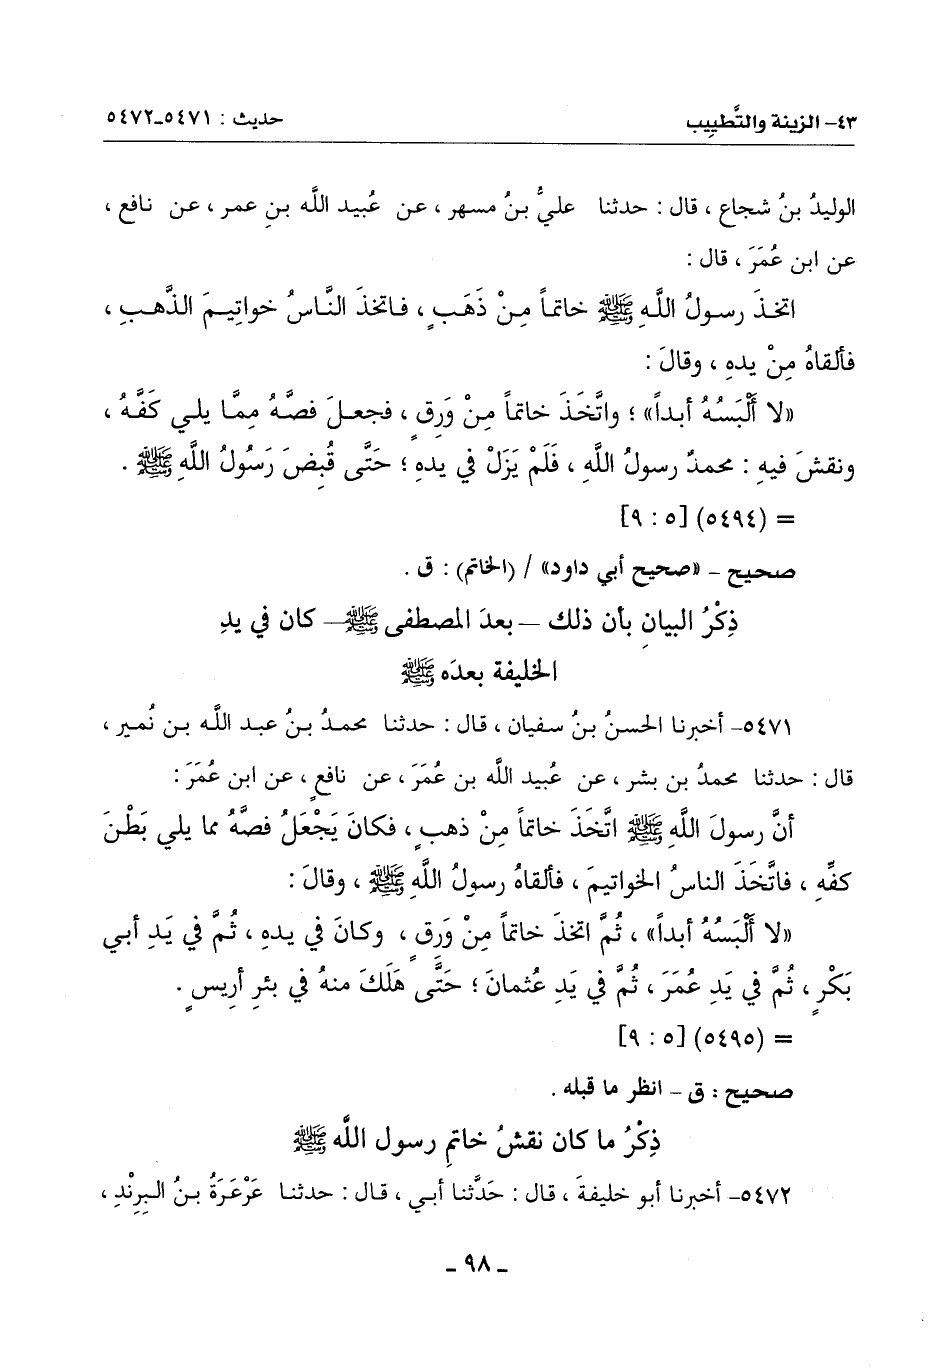 ٤٣- الزينة والتَّطيِيب حديث : ٥٤٧١ـ٥٤٧٢
الوليدُ بنُ شجاع ، قال : حدثنا عليُّ بنُ مسهر ، عن عُبيد الله بنِ عمر ، عن نافع ،
عن ابن عُمَرَ ، قال :
اتخذَ رسولُ اللَّهِ ﷺ خاتماً مِنْ ذَهَبٍ ، فاتخذَ النَّاسُ خواتِيمَ الذَّهبِ ،
فألقاهُ مِنْ يدهِ ، وقالَ :
«لا أَلْبَسُهُ أبداً» ؛ واتَّخَذَ خاتماً مِنْ وَرِقٍ ، فجعلَ فصَّهُ مِمَّا يلي كَفَّهُ ،
ونقشَ فيهِ : محمدٌ رسولُ اللَّه ، فَلَمْ يَزَلْ في يدهِ ؛ حَتَّى قُبِضَ رَسُولُ اللَّهِ ﷺ .
= (٥٤٩٤) [٥ : ٩]
صحيح - «صحيح أبي داود» / (الخاتم) : ق .
ذِكْرُ البيانِ بأن ذلك – بعدَ المصطفى ﷺ – كان في يدِ
الخليفة بعدَه ﷺ
٥٤٧١- أخبرنا الحسنُ بنُ سفيان ، قال : حدثنا محمدُ بنُ عبد اللَّه بن نُمير ،
قال : حدثنا محمدُ بن بشر ، عن عُبيد اللَّه بن عُمَرَ ، عن نافعٍ ، عن ابن عُمَرَ :
أنَّ رسولَ اللَّهِ ﷺ اتَّخَذَ خاتماً مِنْ ذهبٍ ، فكانَ يَجْعَلُ فصَّهُ مما يلي بَطْنَ
كفِّهِ ، فاتَّخَذَ الناسُ الخواتيمَ ، فألقاهُ رسولُ اللَّهِ ﷺ ، وقالَ :
«لا أَلْبَسُهُ أبداً» ، ثُمَّ اتخذَ خاتماً مِنْ وَرِقٍ ، وكانَ في يدهِ ، ثُمَّ في يَدِ أبي
بَكْرٍ ، ثُمَّ في يَدِ عُمَرَ ، ثُمَّ في يَدِ عثمانَ ؛ حَتَّى هَلَكَ منهُ في بئرِ أريسٍ .
= (٥٤٩٥) [٥ : ٩]
صحيح : ق - انظر ما قبله .
ذِكْرُ ما كان نقشُ خاتمِ رسول اللَّه ﷺ
٥٤٧٢- أخبرنا أبو خليفةَ ، قال : حَدَّثنا أبي ، قال : حدثنا عَرْعَرَةُ بنُ البِرِنْدِ ،
ـ ٩٨ ـ